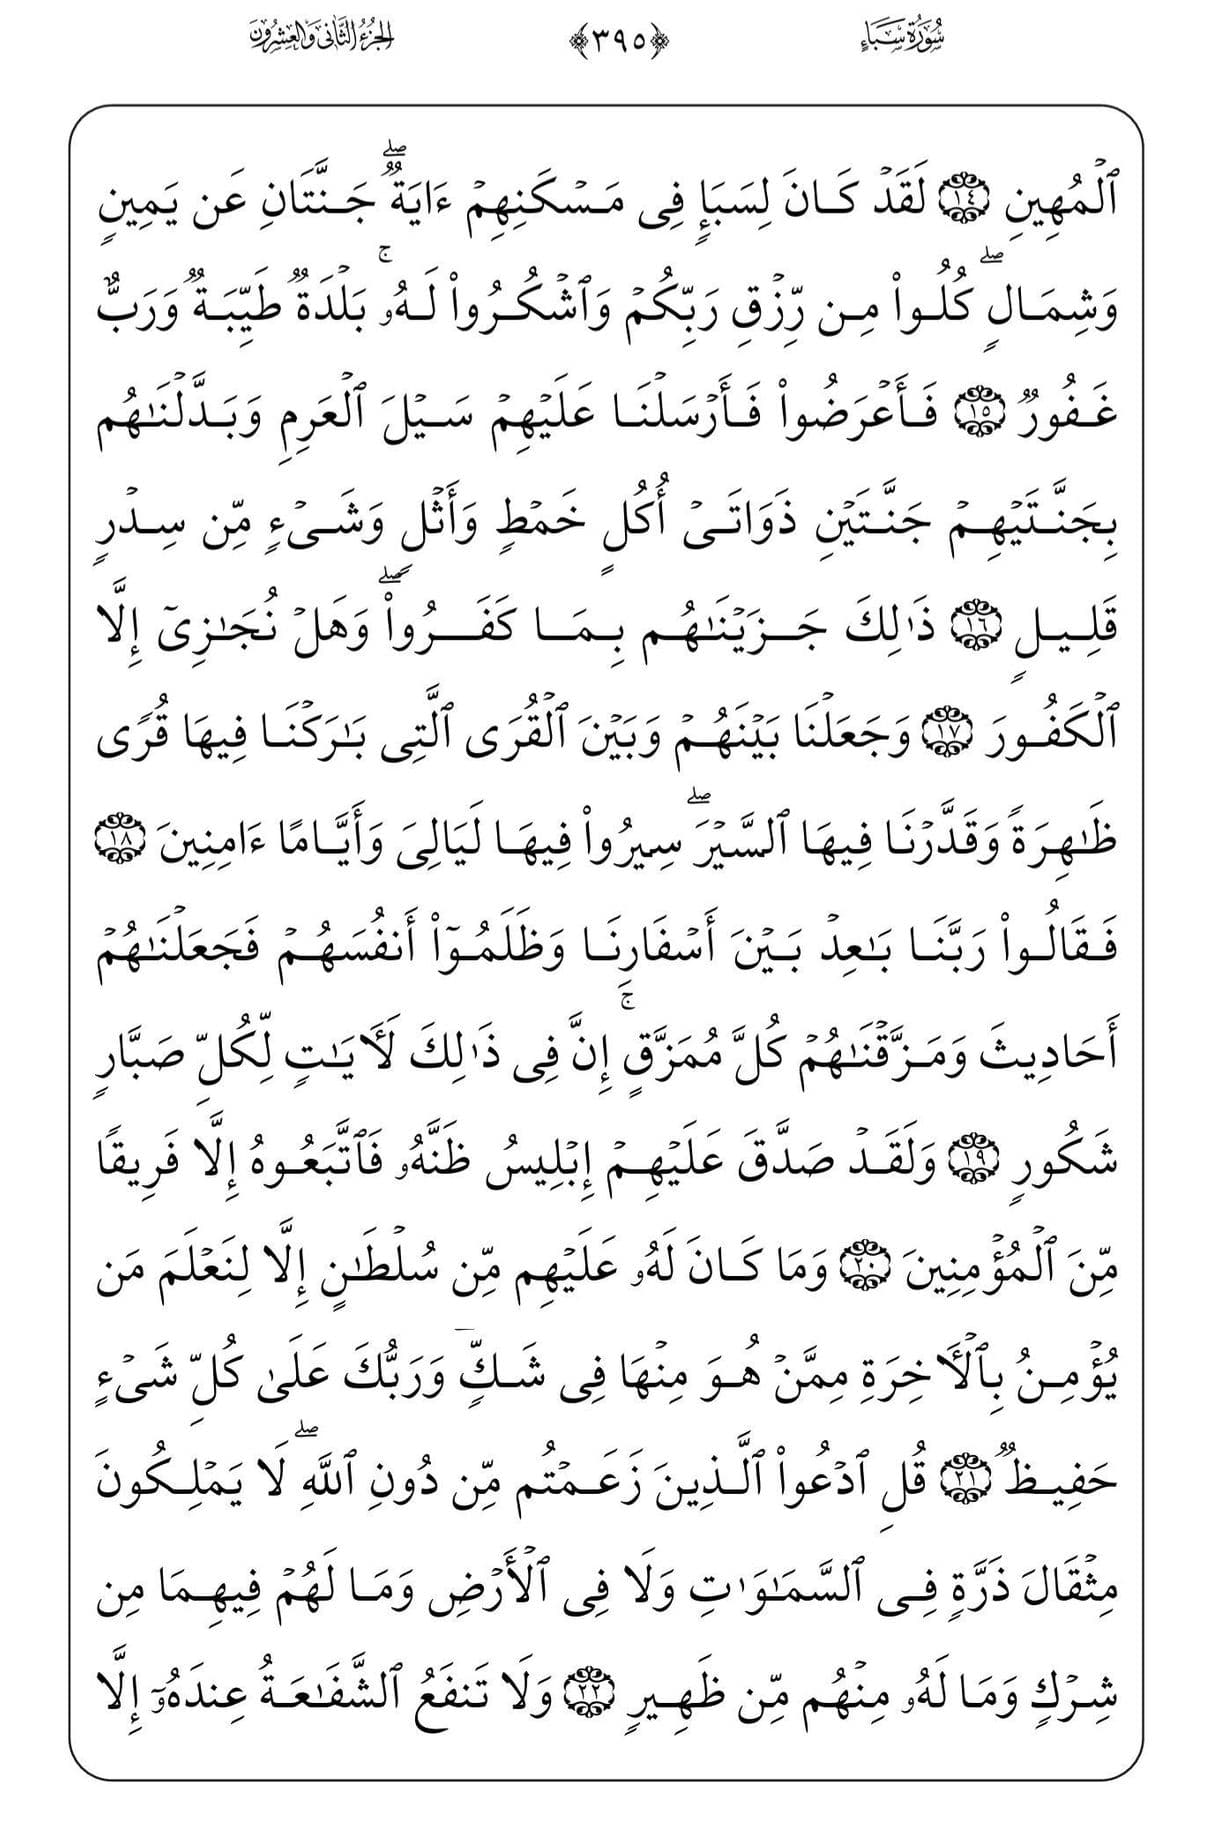 سُورَةُ سَبَإٍ ﴿٣٩٥﴾ الجُزْءُ الثَّانِي وَالعِشْرُونَ
ٱلْمُهِينِ ١٤ لَقَدْ كَانَ لِسَبَإٍ فِى مَسْكَنِهِمْ ءَايَةٌ ۖ جَنَّتَانِ عَن يَمِينٍ
وَشِمَالٍ ۖ كُلُوا۟ مِن رِّزْقِ رَبِّكُمْ وَٱشْكُرُوا۟ لَهُۥ ۚ بَلْدَةٌ طَيِّبَةٌ وَرَبٌّ
غَفُورٌ ١٥ فَأَعْرَضُوا۟ فَأَرْسَلْنَا عَلَيْهِمْ سَيْلَ ٱلْعَرِمِ وَبَدَّلْنَـٰهُم
بِجَنَّتَيْهِمْ جَنَّتَيْنِ ذَوَاتَىْ أُكُلٍ خَمْطٍ وَأَثْلٍ وَشَىْءٍ مِّن سِدْرٍ
قَلِيلٍ ١٦ ذَٰلِكَ جَزَيْنَـٰهُم بِمَا كَفَرُوا۟ ۖ وَهَلْ نُجَـٰزِىٓ إِلَّا
ٱلْكَفُورَ ١٧ وَجَعَلْنَا بَيْنَهُمْ وَبَيْنَ ٱلْقُرَى ٱلَّتِى بَـٰرَكْنَا فِيهَا قُرًى
ظَـٰهِرَةً وَقَدَّرْنَا فِيهَا ٱلسَّيْرَ ۖ سِيرُوا۟ فِيهَا لَيَالِىَ وَأَيَّامًا ءَامِنِينَ ١٨
فَقَالُوا۟ رَبَّنَا بَـٰعِدْ بَيْنَ أَسْفَارِنَا وَظَلَمُوٓا۟ أَنفُسَهُمْ فَجَعَلْنَـٰهُمْ
أَحَادِيثَ وَمَزَّقْنَـٰهُمْ كُلَّ مُمَزَّقٍ ۚ إِنَّ فِى ذَٰلِكَ لَـَٔايَـٰتٍ لِّكُلِّ صَبَّارٍ
شَكُورٍ ١٩ وَلَقَدْ صَدَّقَ عَلَيْهِمْ إِبْلِيسُ ظَنَّهُۥ فَٱتَّبَعُوهُ إِلَّا فَرِيقًا
مِّنَ ٱلْمُؤْمِنِينَ ٢٠ وَمَا كَانَ لَهُۥ عَلَيْهِم مِّن سُلْطَـٰنٍ إِلَّا لِنَعْلَمَ مَن
يُؤْمِنُ بِٱلْـَٔاخِرَةِ مِمَّنْ هُوَ مِنْهَا فِى شَكٍّ ۗ وَرَبُّكَ عَلَىٰ كُلِّ شَىْءٍ
حَفِيظٌ ٢١ قُلِ ٱدْعُوا۟ ٱلَّذِينَ زَعَمْتُم مِّن دُونِ ٱللَّهِ ۖ لَا يَمْلِكُونَ
مِثْقَالَ ذَرَّةٍ فِى ٱلسَّمَـٰوَٰتِ وَلَا فِى ٱلْأَرْضِ وَمَا لَهُمْ فِيهِمَا مِن
شِرْكٍ وَمَا لَهُۥ مِنْهُم مِّن ظَهِيرٍ ٢٢ وَلَا تَنفَعُ ٱلشَّفَـٰعَةُ عِندَهُۥٓ إِلَّا